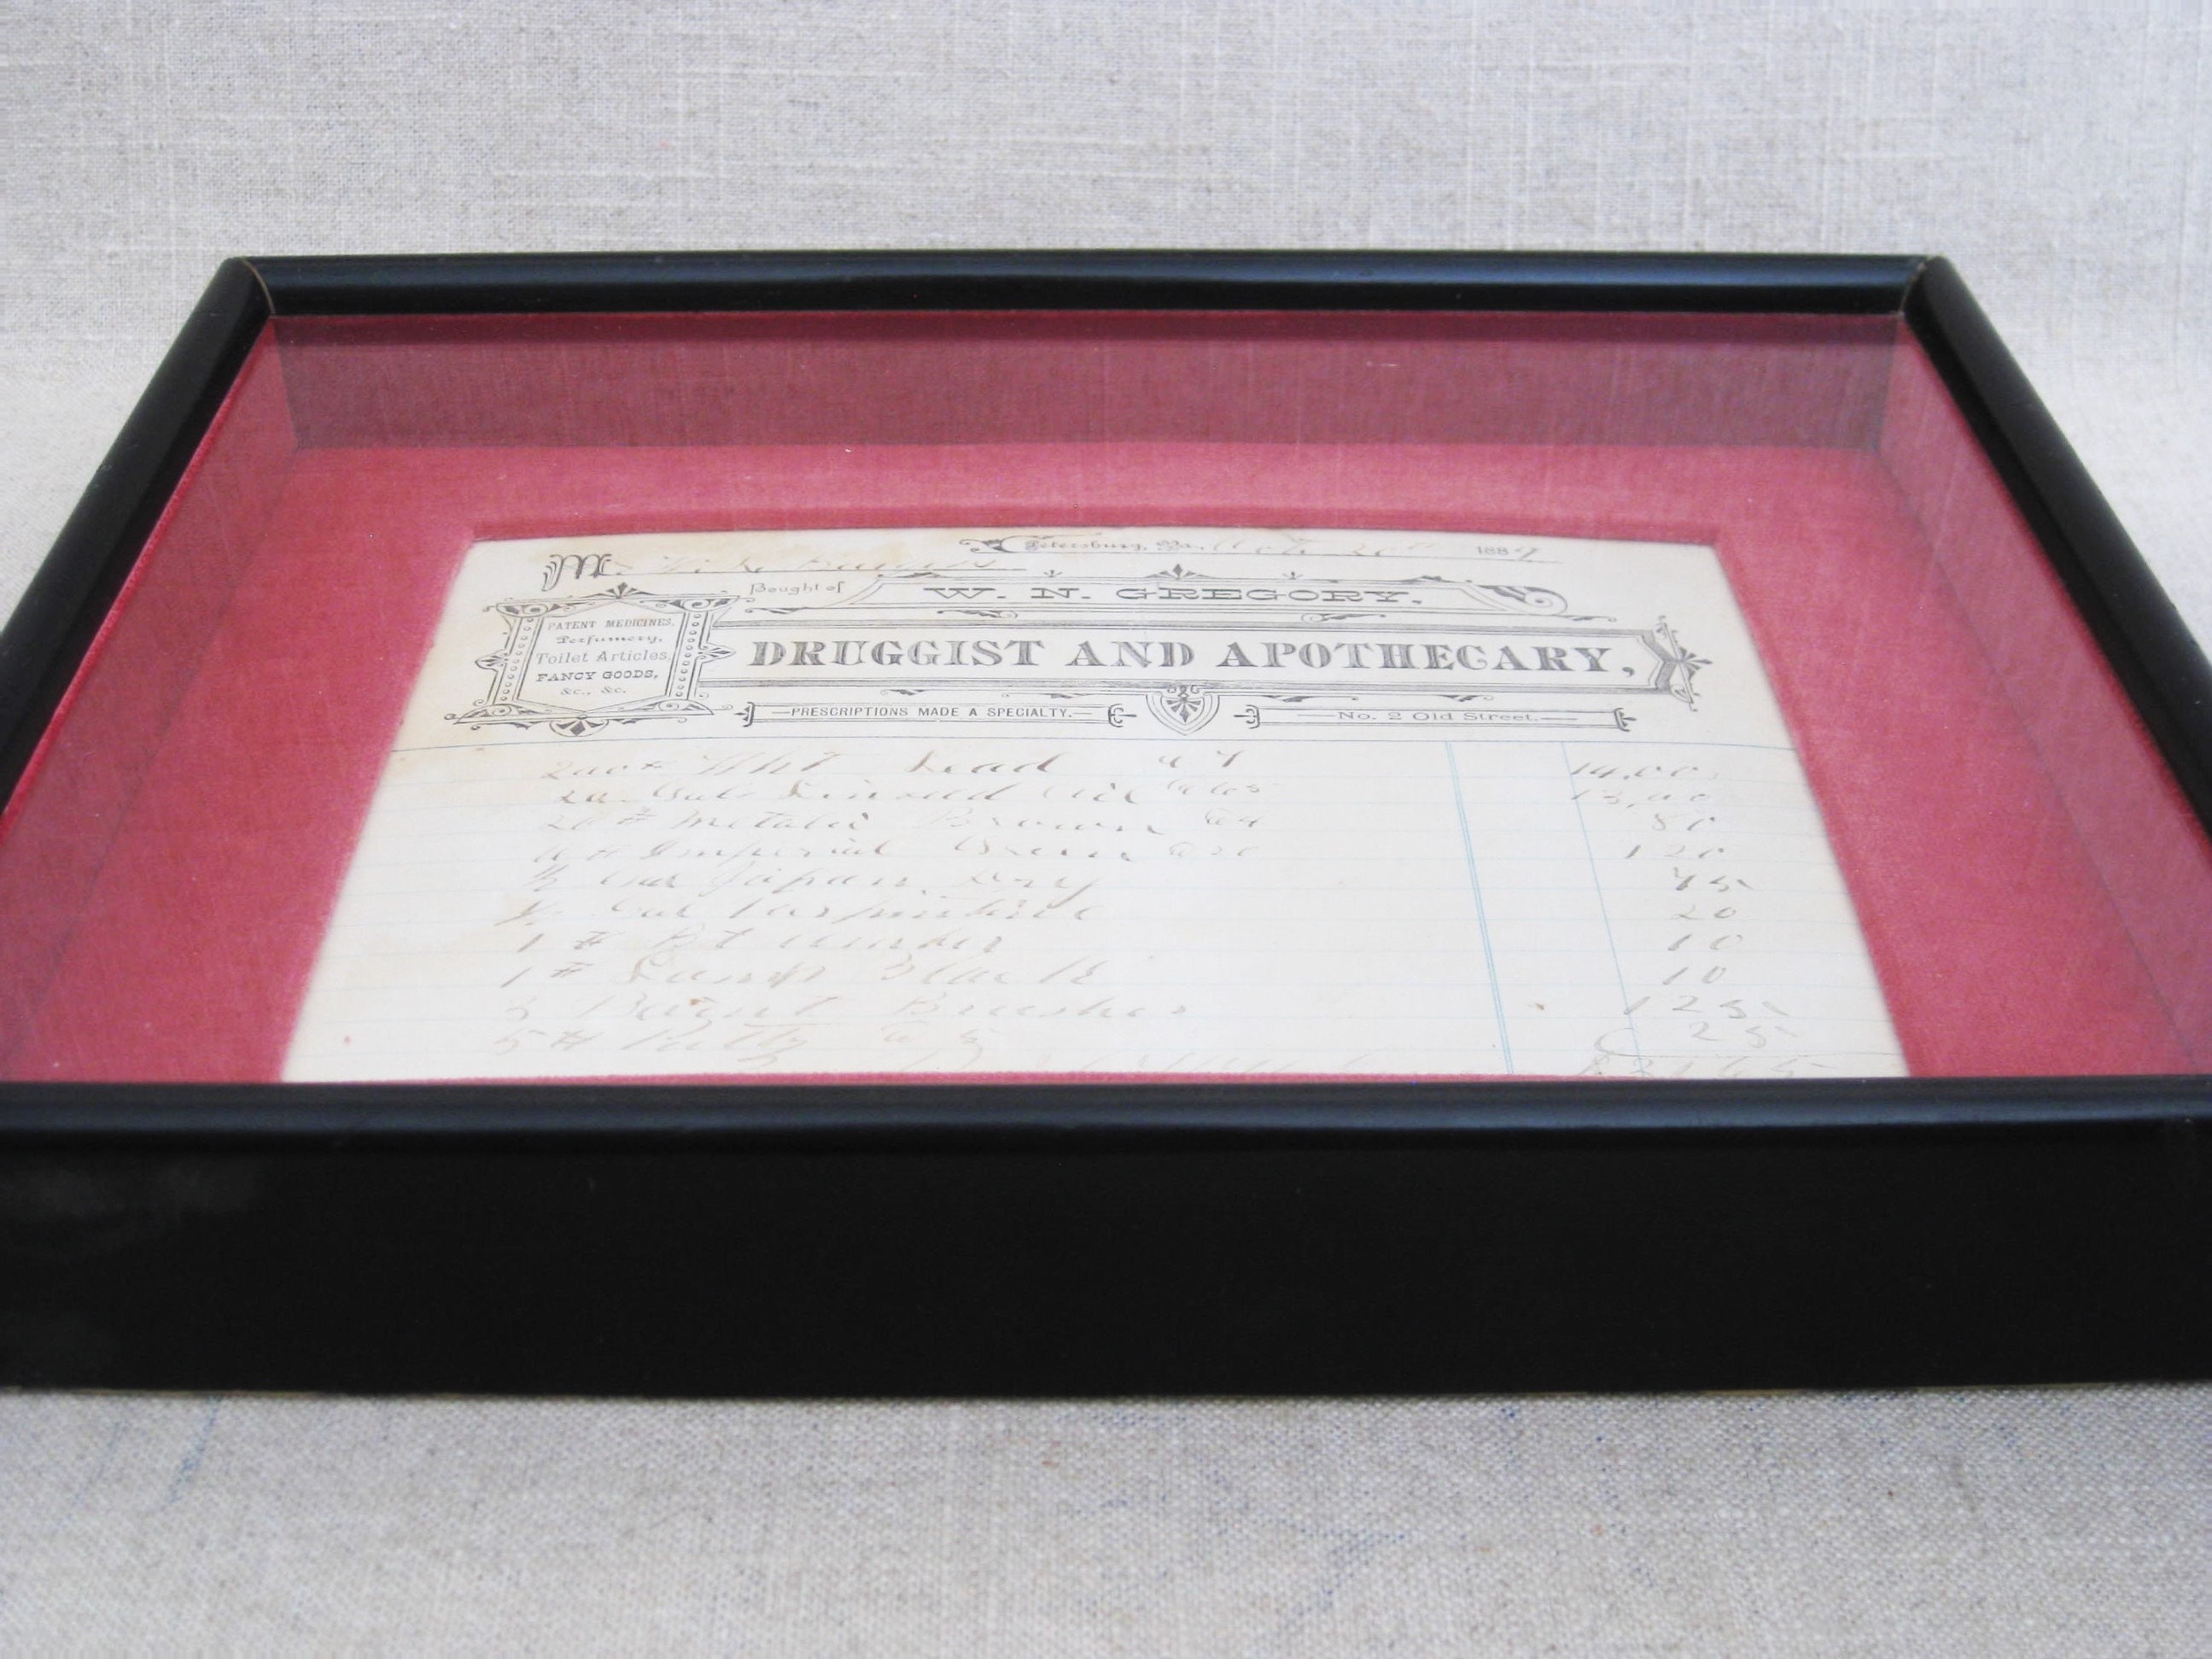 Petersburg, Va., Oct 20th 1889
M
Bought of W. N. GREGORY,
DRUGGIST AND APOTHECARY,
PATENT MEDICINES,
Perfumery,
Toilet Articles,
FANCY GOODS,
&c., &c.
PRESCRIPTIONS MADE A SPECIALTY.
No. 2 Old Street.
200# Wht Lead @ 7 14.00
20 Gal Linseed Oil @ 65 13,00
20# Metalic Brown @ 4 80
Imperial Green @ 20 1 20
1/2 Gal Japan Dry 75
Gal Turpentine 20
1 # Bt umber 10
1 # Lamp Black 10
3 Paint Brushes 1 25
5 # Putty @ 5 25